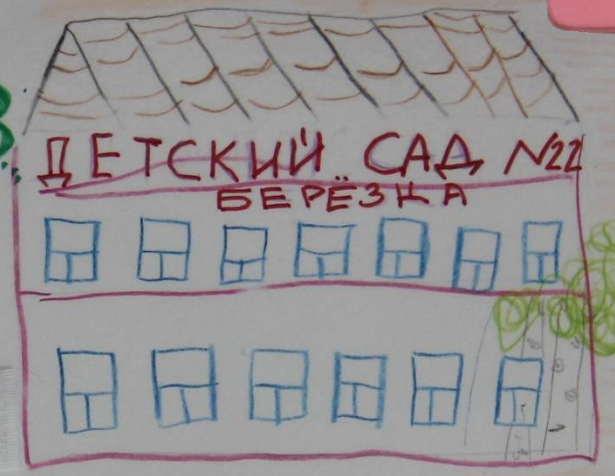 ДЕТСКИЙ САД №22
БЕРЁЗКА